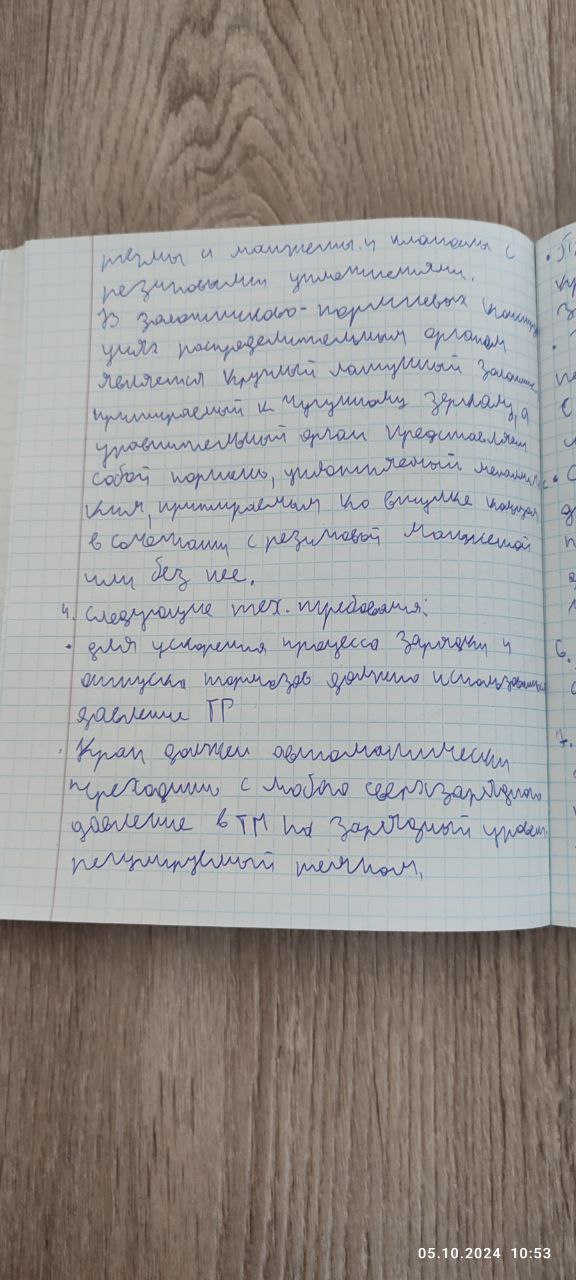 и манжеты и клапаны с
резиновыми уплотнениями.
В золотниково-поршневых конструк
циях распределительным органом
является круглый латунный золотник
притираемый к чугунному зеркалу, а
уравнительный орган представляет
собой поршень, уплотняемый металличес
ким, притираемым ко втулке кольцом
в сочетании с резиновой манжетой
или без нее.
4. следующие тех. требования:
• для ускорения процесса зарядки и
отпуска тормозов должно использоваться
давление ГР
• Кран должен автоматически
переходить с любого сверхзарядного
давление в ТМ на зарядный уровень
регулируемый темпом.
• 
6.
7.
05.10.2024 10:53